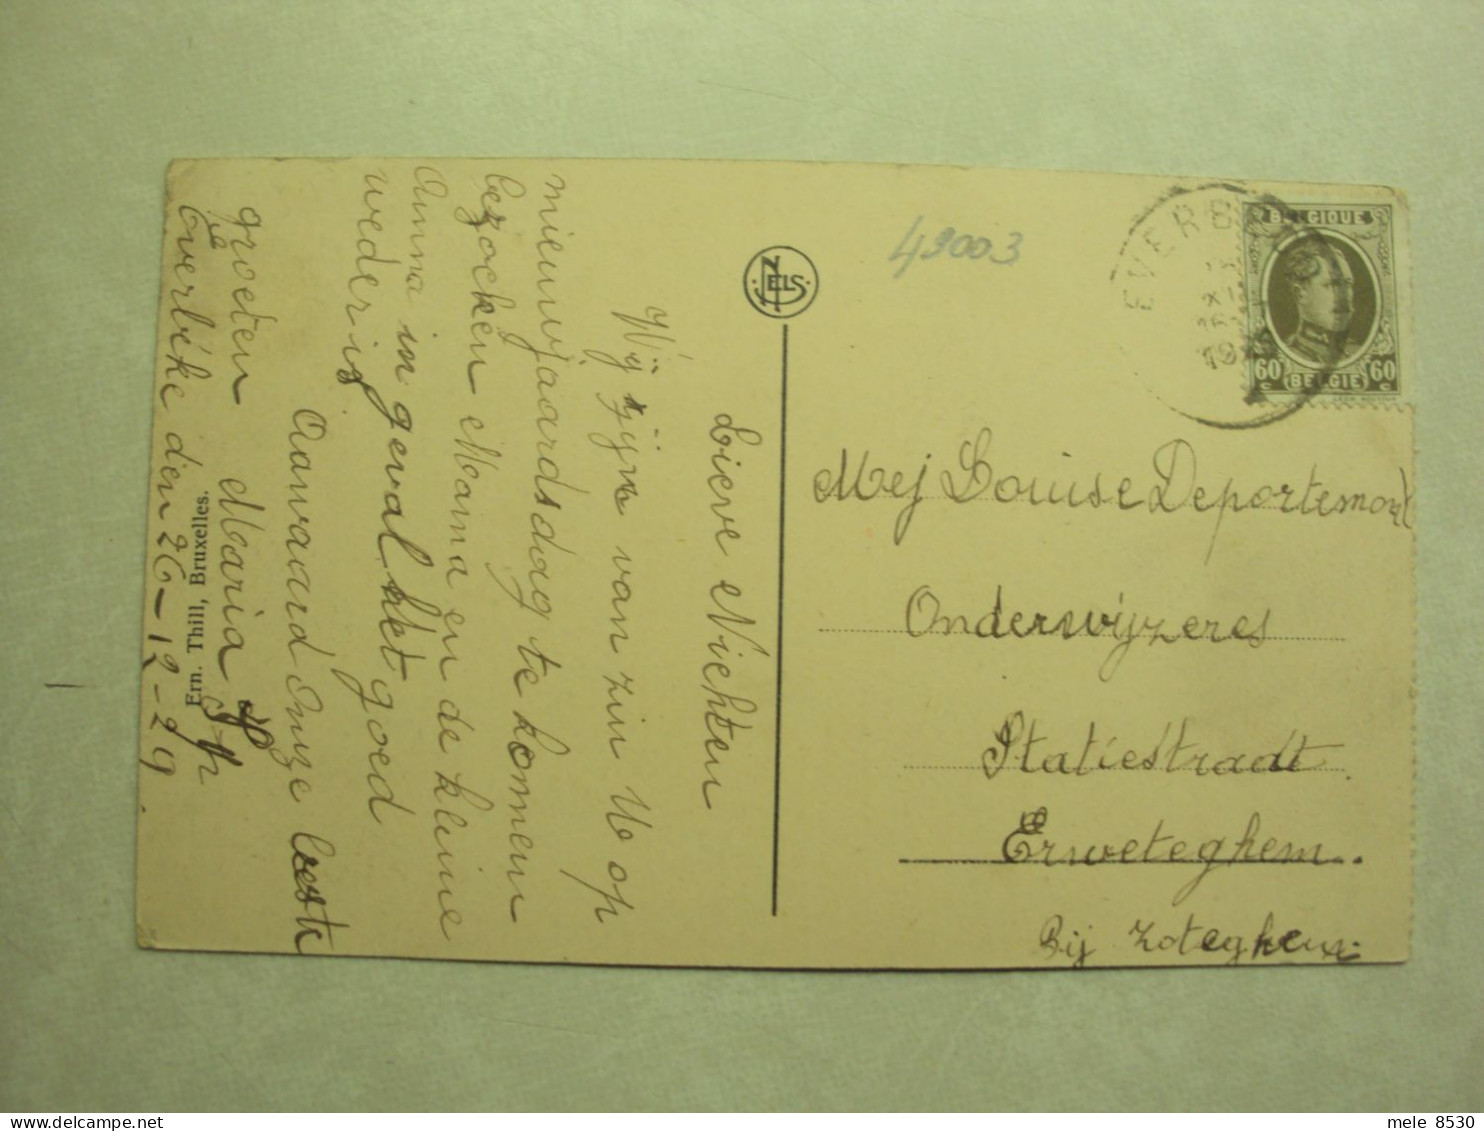 Lieve Nichten
Wij zijn van zin U op
nieuwjaardsdag te komen
bezoeken Mama en de kleine
Anna in geval het goed
weder is
Aanvaard Onze beste
groeten Maria
Everbéke den 26-12-29.
Ern. Thill, Bruxelles.
NELS
49003
EVERB
BELGIQUE
60 c
60 c
BELGIË
Mej Louise Deportemont
Onderwijzeres
Statiestraat
Erweteghem..
Bij Zoteghem.
mele 8530